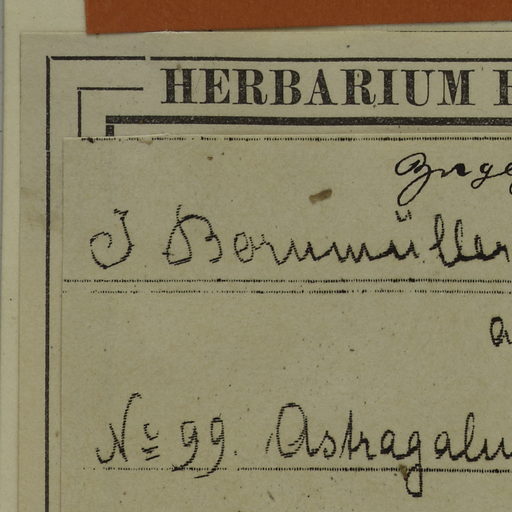 HERBARIUM
J Bornmüller
No 99. Astragalu